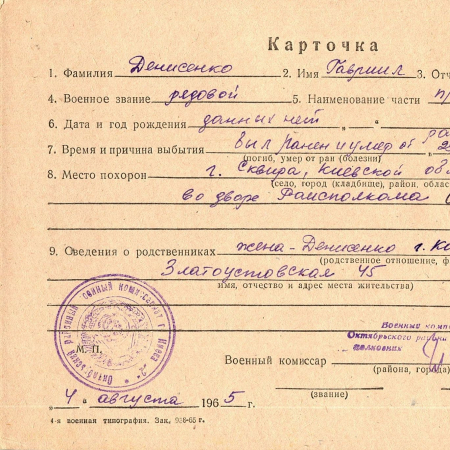 Карточка
1. Фамилия Денисенко 2. Имя Гавриил 3. Отч
4. Военное звание рядовой 5. Наименование части п/
6. Дата и год рождения данных нет „
7. Время и причина выбытия был ранен и умер от ра
(погиб, умер от ран (болезни)
8. Место похорон г. Сквира, Киевской обл
(село, город (кладбище), район, облас
во дворе Райсполкома
9. Сведения о родственниках жена-Денисенко г. Ки
(родственное отношение, ф
Златоустовская 45
имя, отчество и адрес места жительства)
Военный ком
Октябрьского рай
полковник
М. П.
Военный комиссар
(района, города)
(звание)
„4" августа 1965 г.
4-я военная типография. Зак. 936-65 г.